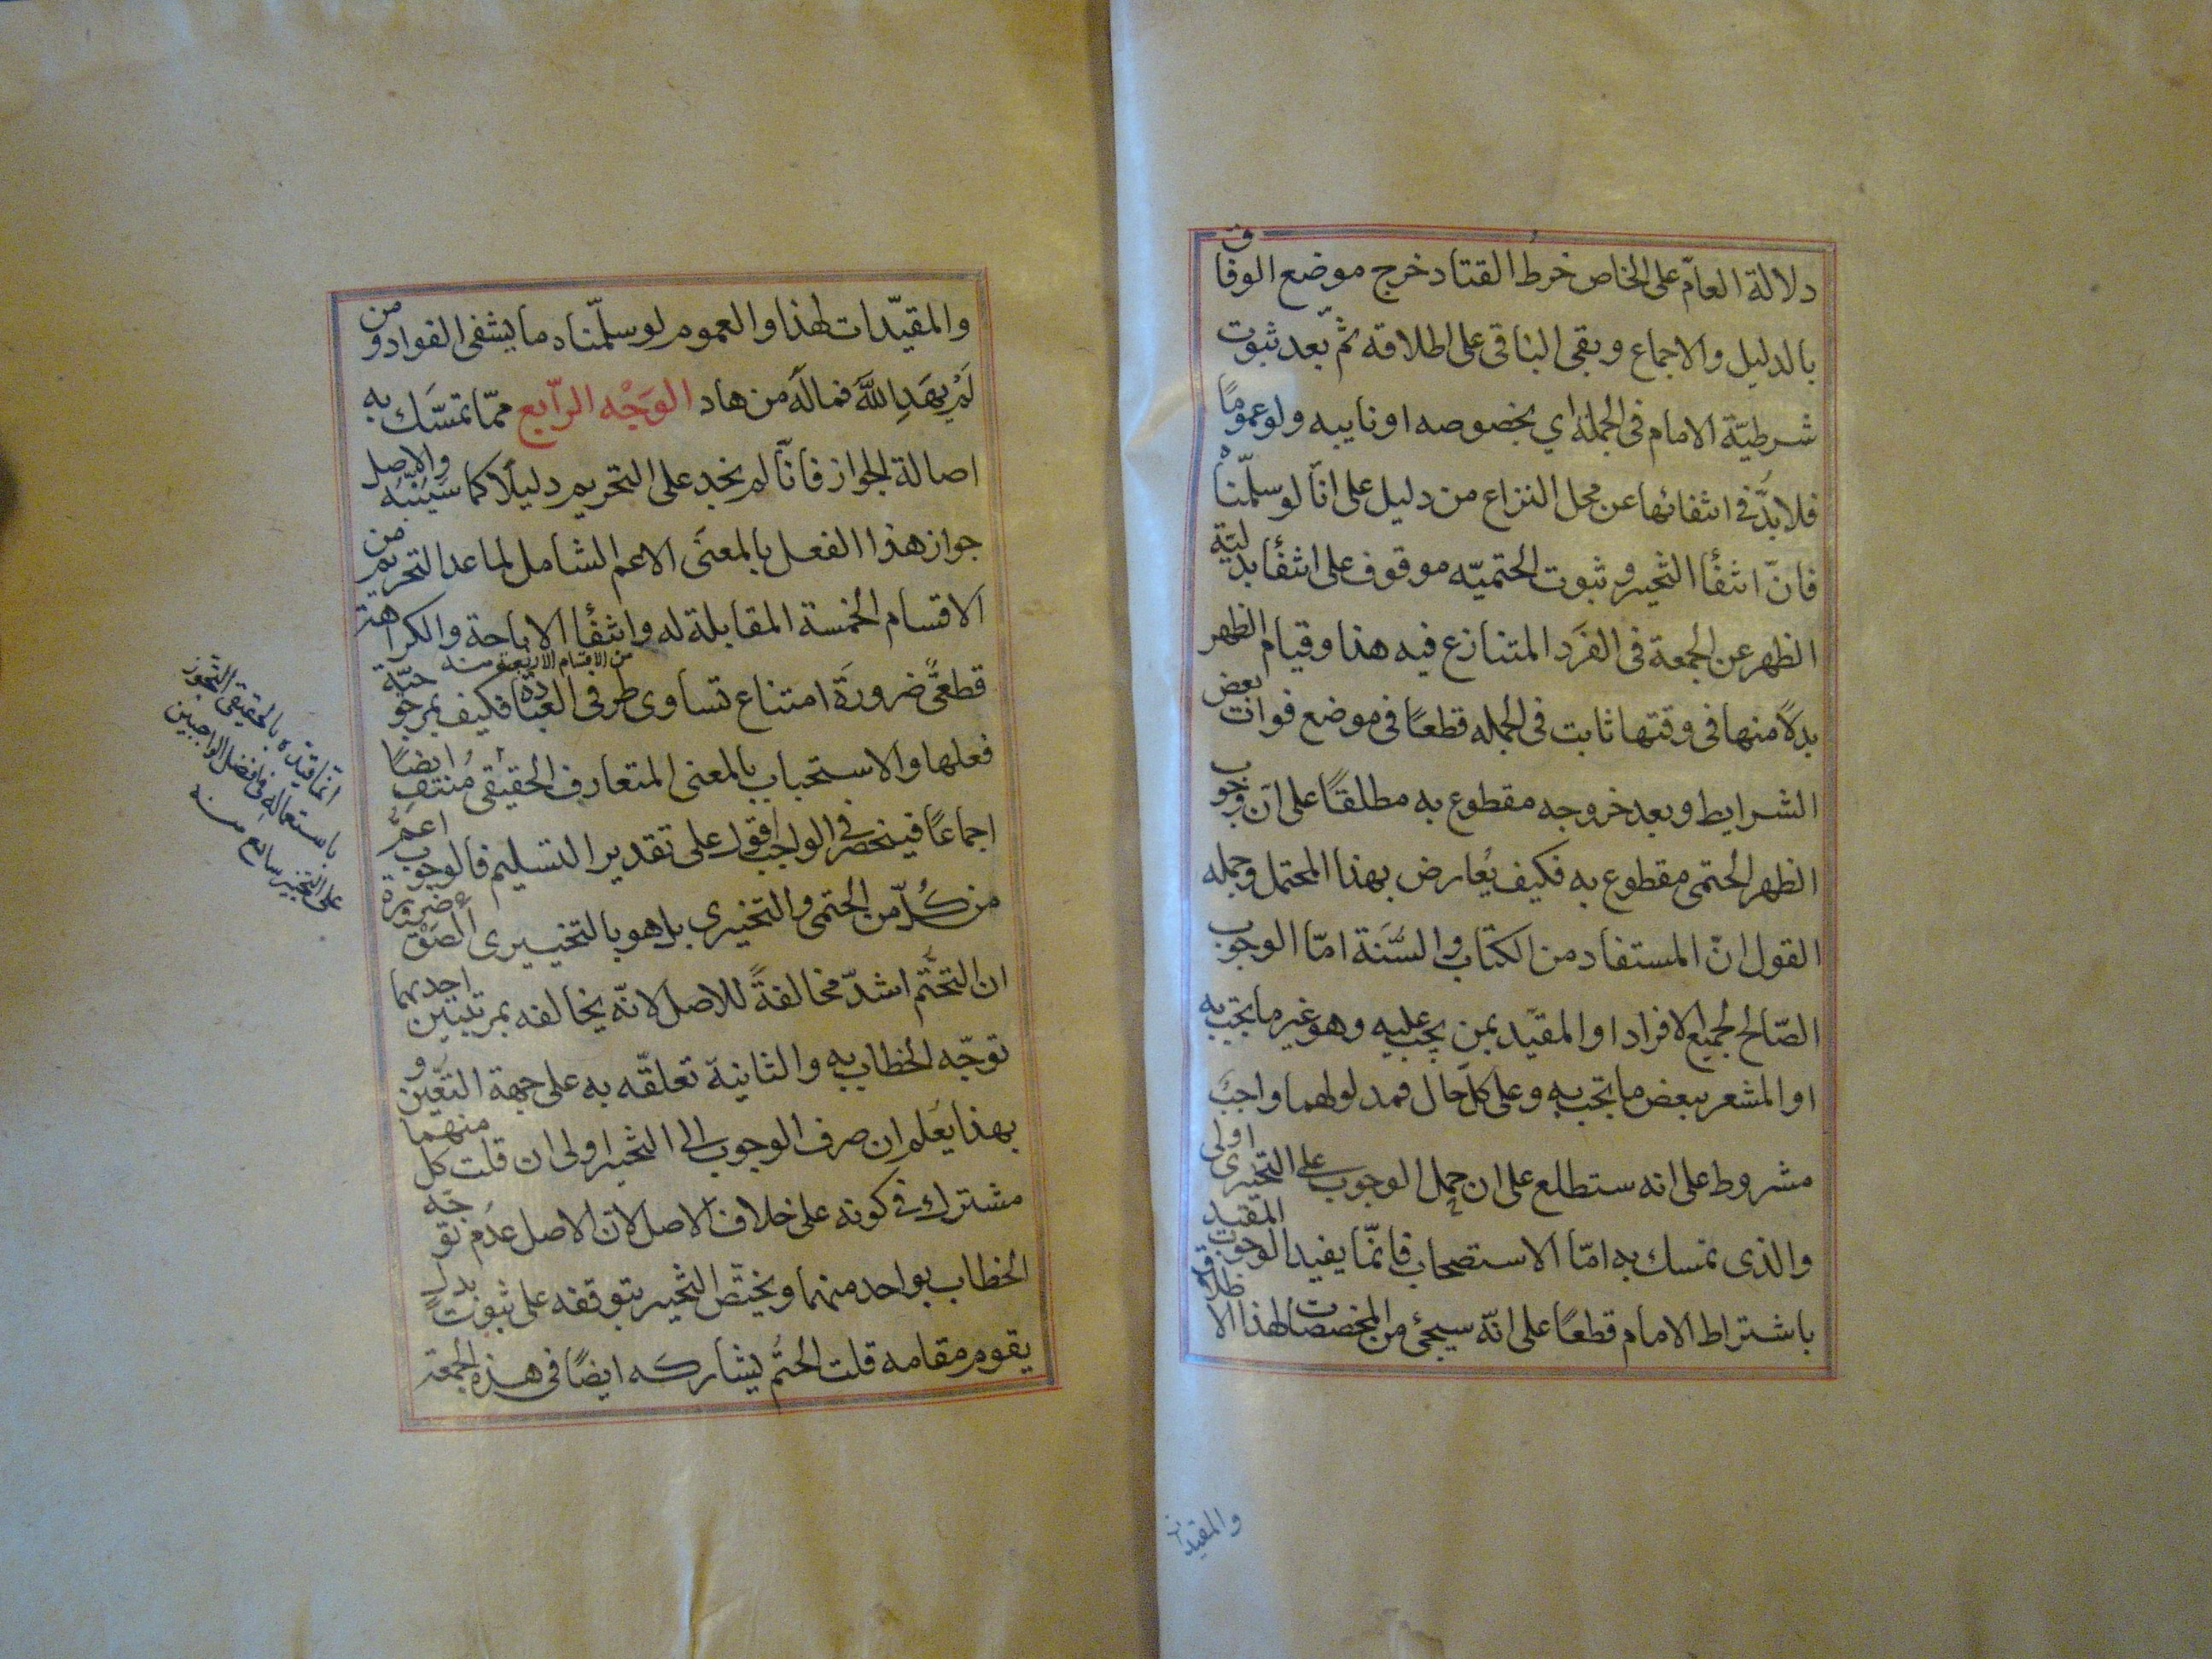 دلالة العامّ على الخاص خرط القتاد خرج موضع الوفاق
بالدليل والاجماع وبقى الباقى على اطلاقه ثمّ بعد ثبوت
شرطيّة الامام فى الجملة اي بخصوصه او نايبه ولو عمومًا
فلا بدّ فى انتفائها عن محل النزاع من دليل على انّا لو سلّمناه
فانّ انتفأ التخير وثبوت الحتميّه موقوف على انتفأ بدليّة
الظهر عن الجمعة فى الفرد المتنازع فيه هذا وقيام الظهر
بدلًا منها فى وقتها ثابت فى الجمله قطعًا فى موضع فوات بعض
الشرايط وبعد خروجه مقطوع به مطلقًا على انّ وجوب
الظهر الحتمى مقطوع به فكيف يُعارض بهذا المحتمل وجمله
القول انّ المستفاد من الكتاب والسُّنَة امّا الوجوب
الصّالح لجميع الافراد او المقيّد بمن يجب عليه وهو غير ما يجب به
او المشعر ببعض ما يجب به وعلى كلّ حال فمدلولهما واجبٌ
مشروط على انه ستطلع على ان حمل الوجوب على التخيرى اولى
والذى تمسك به امّا الاستصحاب فانّما يفيد الوجوب المقيد
باشتراط الامام قطعًا على انّه سيجئ من المخصصات لهذا الاطلاق
والمقيدات
والمقيّدات لهذا والعموم لو سلّمناه ما يشفى الفواد ومن
لَمْ يهَدِ اللهَ فماله من هاد الوَجْه الرّابع ممّا تمسَّك به
اصالة الجواز فانّا لم نجد على التحريم دليلًا كما سَنبيّنه والاصل
جواز هذا الفعل بالمعنَى الاعم الشامل لما عدا التحريم من
الاقسام الخمسة المقابلة له وانتفأ الاباحة والكراهة
من الاقسام الاربعة منه
قطعىٌّ ضرورةَ امتناع تساوى طرفى العبادة فكيف بمرجوحيّة
فعلها والاستحباب بالمعنى المتعارف الحقيقى مُنتفٍ ايضًا
اجماعًا فينحصر فى الواجب اقول على تقدير التسليم فالوجوب اعمّ
من كُلّ من الحتمى والتخيرى بل هو بالتخييرى الصَق ضرورة
ان التحَتُّم اشدّ مخالفةً للاصل لانّه يخالفه بمرتبتين احديهما
توجّه الخطاب به والثانية تعلقّه به على جهة التعيّن و
بهذا يعلم ان صرف الوجوب الى التخير اولى ان قلت كل منهما
مشترك فى كونه على خلاف الاصل لانّ الاصل عدم توجّه
الخطاب بواحد منهما ويختصّ التخير بتوقفه على ثبوت بدلٍ
يقوم مقامه قلت الحتمُ يشاركه ايضًا فى هذه الجمعة
انّما قيّده بالحقيقى التجوز
باستعماله فى افضل الواجبين
على التخير سايع منه